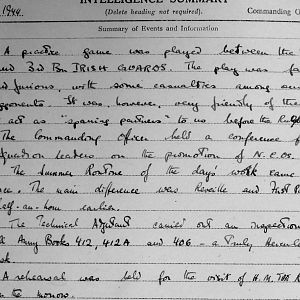 INTELLIGENCE SUMMARY
1944
(Delete heading not required).
Commanding O
Summary of Events and Information
A practice game was played between the
and 3rd Bn IRISH GUARDS. The play was fa
and furious, with some casualties among ou
opponents. It was, however, very friendly of the
act as "sparring partners" to us before the Rugb
The Commanding Officer held a conference f
Squadron Leaders on the promotion of N.C.Os.
The Summer Routine of the days work came
The main difference was Reveille and First P
half-an-hour earlier.
The Technical Adjutant carried out an inspection
Army Books 412, 412A and 406 - a Truly Hercul
A rehearsal was held for the visit of H.M. The K
in the morning.